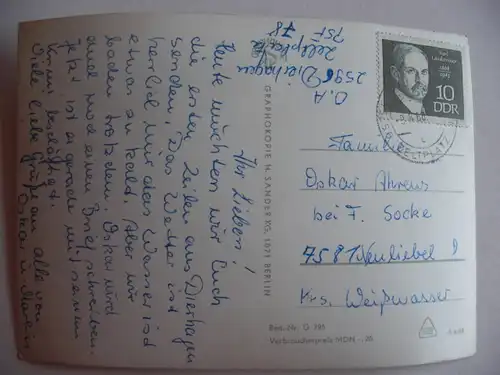 O.A
2596 Dierhagen
Zeltplatz
PSF 78
Ihr Lieben!
Heute möchten wir Euch
die ersten Zeilen aus Dierhagen
senden. Das Wetter ist
herrlich nur das Wasser ist
etwas zu kalt. Aber wir
baden trotzdem. Oskar wird
auch noch einen Brief schreiben.
Jetzt ist er gerade mit seinem
beschäftigt.
Viele liebe Grüße an alle von
Oskar u.
GRAPHOKOPIE H. SANDER KG, 1071 BERLIN
10
DDR
ZELTPLATZ
Familie
Oskar Ahrens
bei F. Socke
7581 Neuliebel
Krs. Weißwasser
Best.-Nr. G 785
Verbraucherpreis MDN -,20